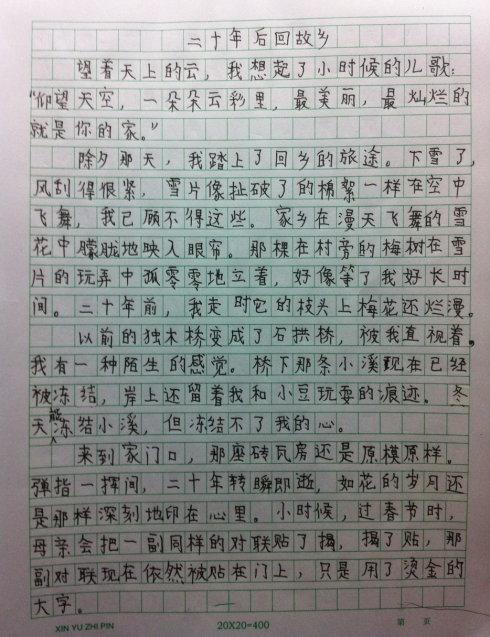 二十年后回故乡
望着天上的云，我想起了小时候的儿歌：
“仰望天空，一朵朵云彩里，最美丽，最灿烂的
就是你的家。”
除夕那天，我踏上了回乡的旅途。下雪了，
风刮得很紧，雪片像扯破了的棉絮一样在空中
飞舞，我已顾不得这些。家乡在漫天飞舞的雪
花中朦胧地映入眼帘。那棵在村旁的梅树在雪
片的玩弄中孤零零地立着，好像等了我好长时
间。二十年前，我走时它的枝头上梅花还烂漫。
以前的独木桥变成了石拱桥，被我直视着。
我有一种陌生的感觉。桥下那条小溪现在已经
被冻结，岸上还留着我和小豆玩耍的痕迹。冬
天能冻结小溪，但冻结不了我的心。
来到家门口，那座砖瓦房还是原模原样。
弹指一挥间，二十年转瞬即逝，如花的岁月还
是那样深刻地印在心里。小时候，过春节时，
母亲会把一副同样的对联贴了揭，揭了贴，那
副对联现在依然被贴在门上，只是用了烫金的
大字。
XIN YU ZHI PIN 20X20=400 第 页